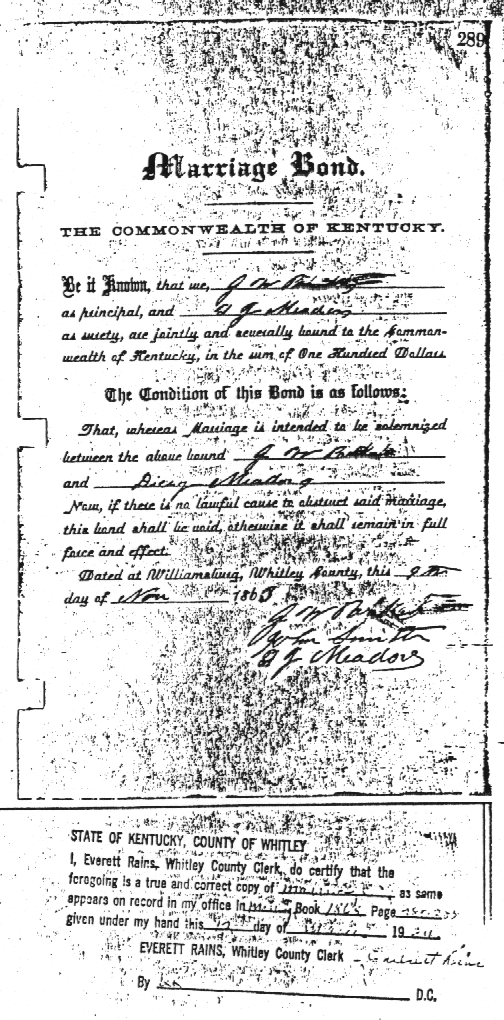 289
Marriage Bond.
THE COMMONWEALTH OF KENTUCKY.
Be it Known, that we, J W
as principal, and A J Meadors
as surety, are jointly and severally bound to the Common-
wealth of Kentucky, in the sum of One Hundred Dollars
The Condition of this Bond is as follows:
That, whereas Marriage is intended to be solemnized
between the above bound J W
and Dicey Meadors
Now, if there is no lawful cause to obstruct said marriage,
this bond shall be void, otherwise it shall remain in full
force and effect.
Dated at Williamsburg, Whitley County, this
day of Nov 1865
J W
Wm Smith
A J Meadors
STATE OF KENTUCKY, COUNTY OF WHITLEY
I, Everett Rains, Whitley County Clerk, do certify that the
foregoing is a true and correct copy of as same
appears on record in my office in Book 1865 Page
given under my hand this day of 19
EVERETT RAINS, Whitley County Clerk - Everett Rains
By D.C.